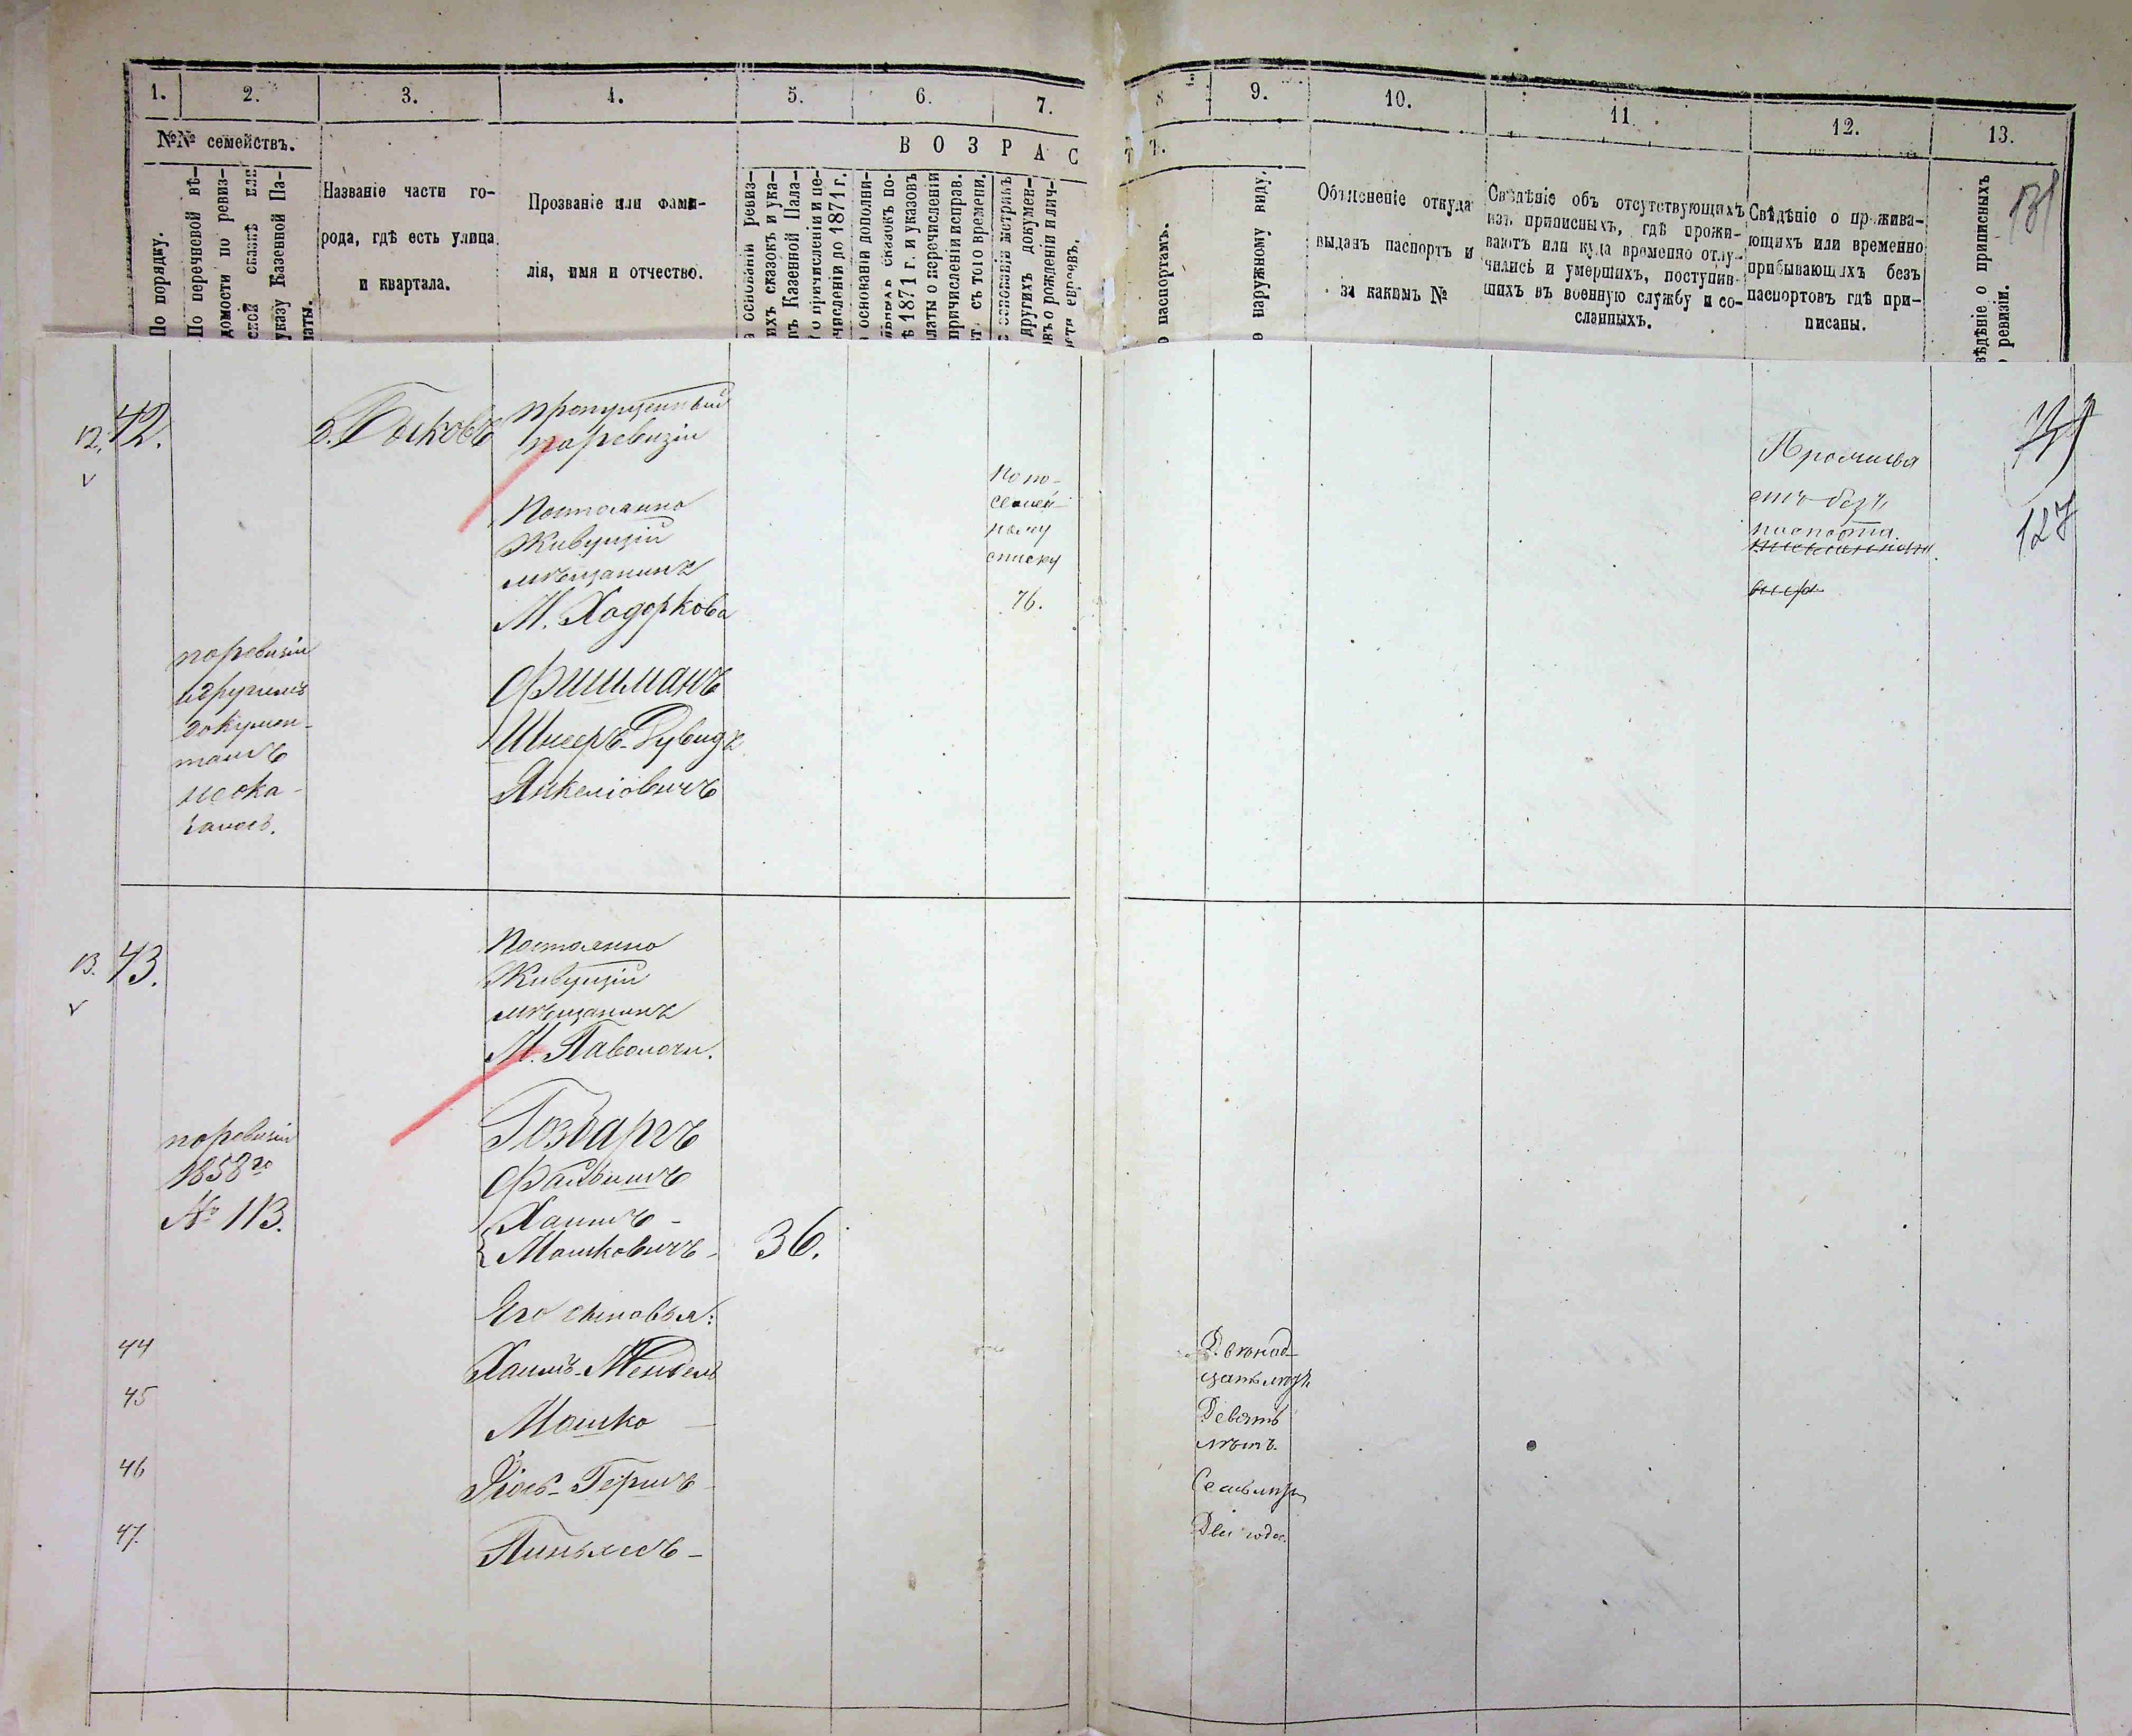 1. 2. 3. 4. 5. 6. 7. 8 9. 10. 11. 12. 13.
№№ семействъ.
В О З Р А С Т Ъ.
По порядку.
По перечневой вѣ-
домости по ревиз-
ской сказкѣ или
указу Казенной Па-
латы.
Названіе части го-
рода, гдѣ есть улица
и квартала.
Прозваніе или фами-
лія, имя и отчество.
а основаніи ревиз-
ихъ сказокъ и ука-
въ Казенной Пала-
о причисленіи и пе-
численіи до 1871 г.
основаніи дополни-
сказокъ по-
ѣ 1871 г. и указовъ
латы о перечисленіи
причисленіи исправ.
съ того времени.
основаніи метрикъ
другихъ докумен-
овъ о рожденіи и лич-
ости евреевъ.
о паспортамъ.
о наружному виду.
Объясненіе откуда
выданъ паспортъ и
за какимъ №
Свѣдѣніе объ отсутствующихъ
изъ приписныхъ, гдѣ прожи-
ваютъ или куда временно отлу-
чились и умершихъ, поступив-
шихъ въ военную службу и со-
сланныхъ.
Свѣдѣніе о прожива-
ющихъ или временно
прибывающихъ безъ
паспортовъ гдѣ при-
писаны.
вѣдѣніе о приписныхъ
о ревизіи.
131
12. 42.
пропущенный
по ревизіи
Постоянно
Живущій
мѣщанинъ
М. Ходоркова
Фишманъ
Шнееръ-Дувидъ
Янкеліовичъ
по ревизіи
и другимъ
докумен-
тамъ
не ока-
залось.
По по-
семей-
ному
списку
76.
Прожива
етъ безъ
паспорта.
127
13. 43.
Постоянно
Живущій
мѣщанинъ
М. Паволочи.
Гозбаргъ
Фальвишъ
Хаимъ-
Мошковичъ- 36.
по ревизіи
1858 го
№ 113.
Его сыновья:
44 Хаимъ-Мендель
45 Мошко
Девять
лѣтъ.
46 Іось-Гершъ
Семь лѣтъ
47. Пиньхосъ-
Два года.